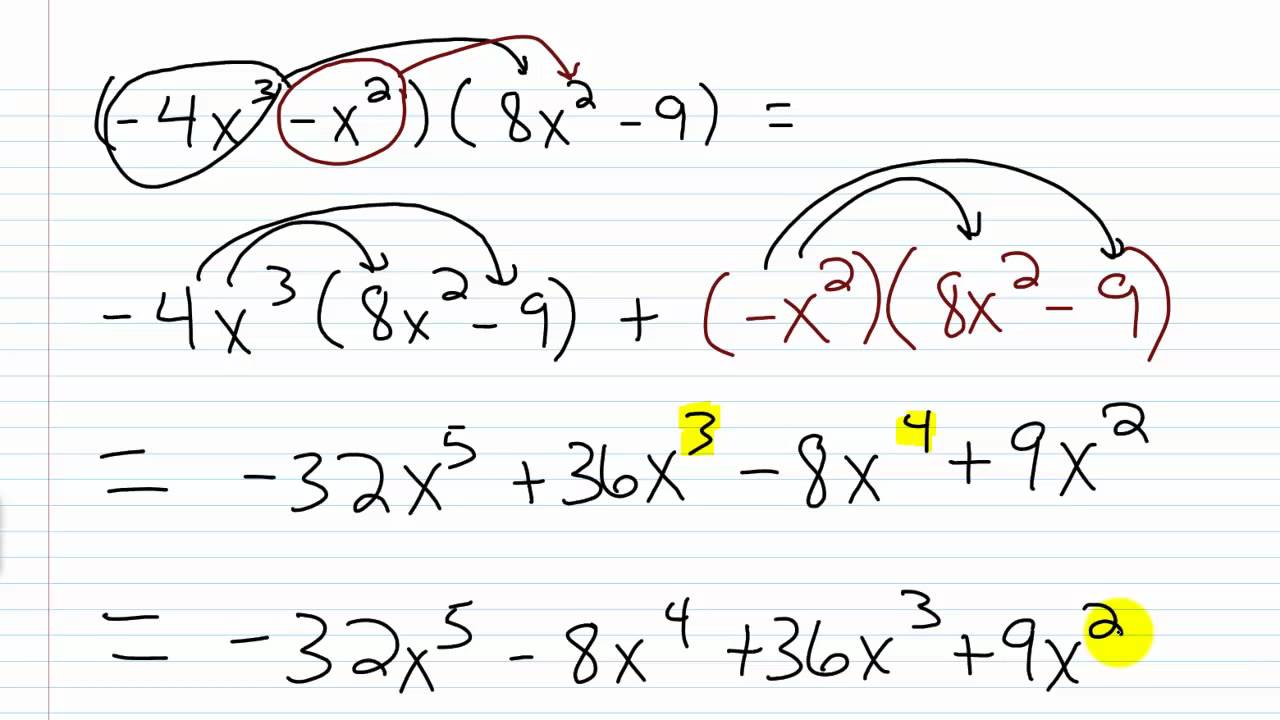 (-4x³ -x²)(8x² -9) =
-4x³(8x² -9) + (-x²)(8x² -9)
= -32x⁵ +36x³ -8x⁴ +9x²
= -32x⁵ -8x⁴ +36x³ +9x²